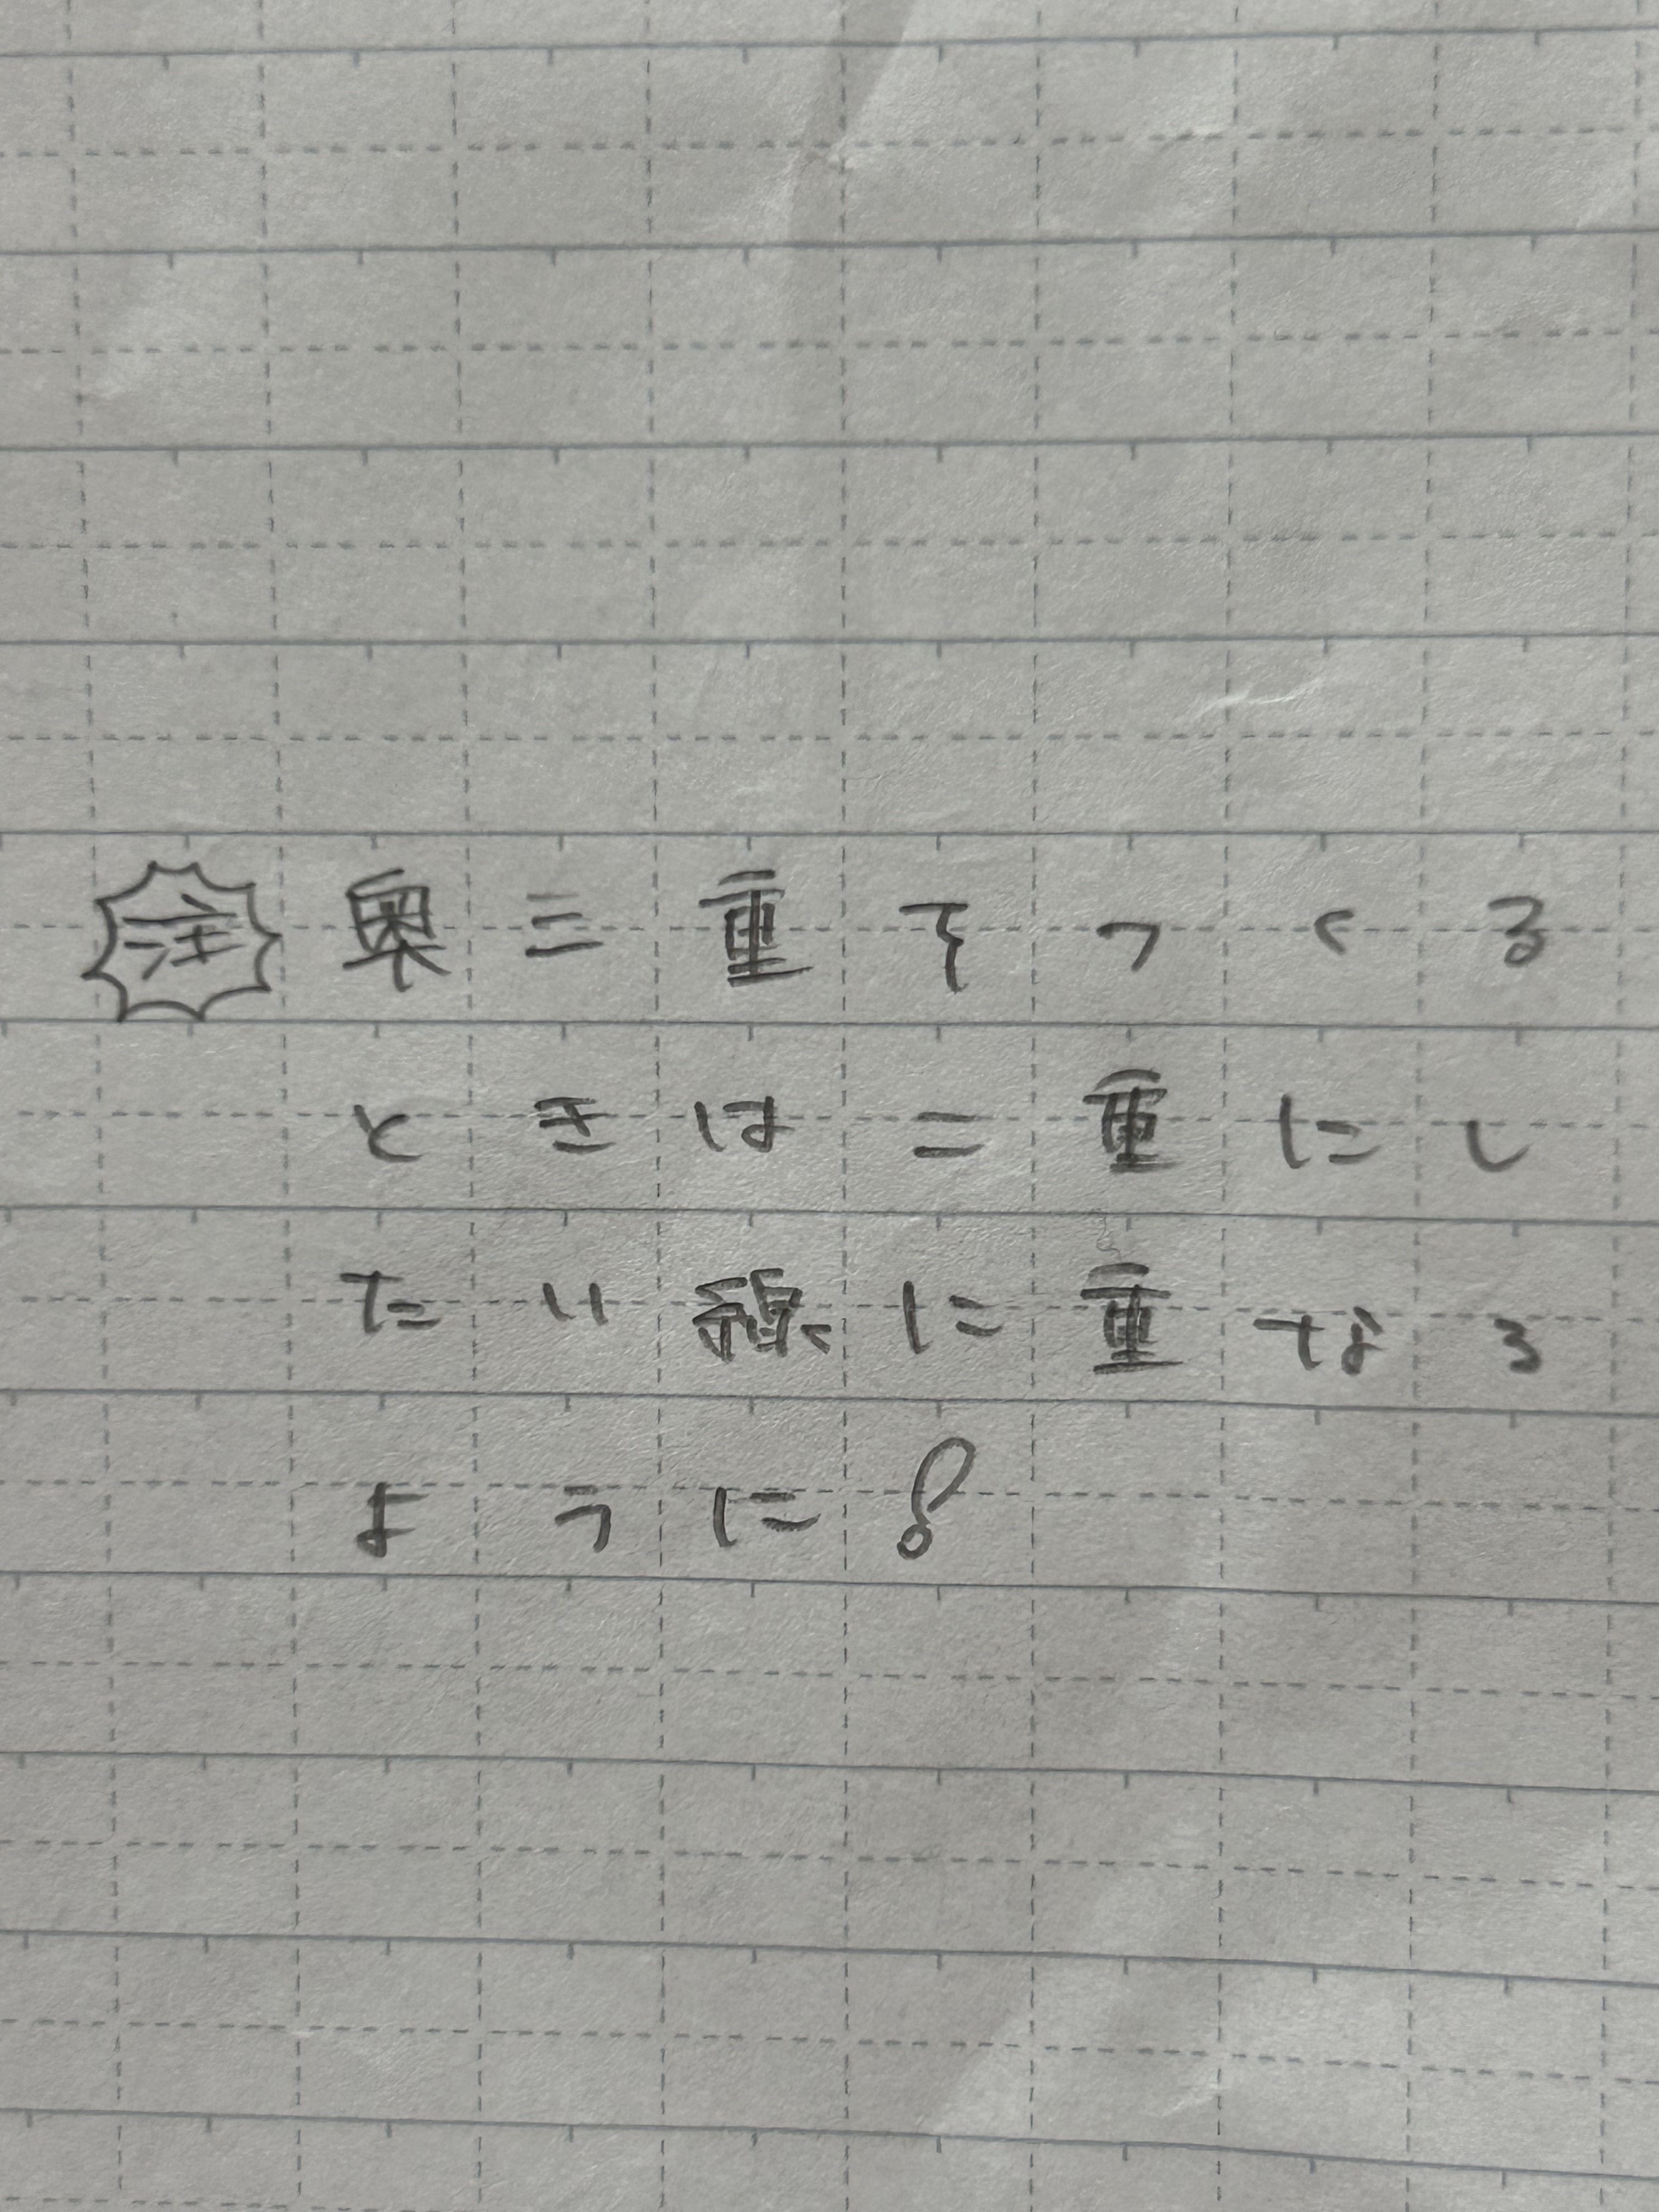 注 奥三重をつくる
ときは二重にし
たい線に重なる
ように!